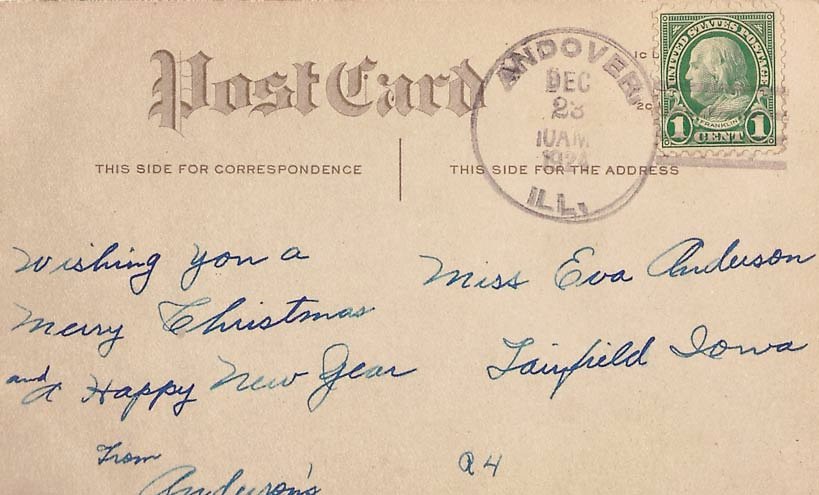 Post Card
ANDOVER,
DEC
23
10AM
1924
ILL.
UNITED STATES POSTAGE
FRANKLIN
1 CENT 1
THIS SIDE FOR CORRESPONDENCE
THIS SIDE FOR THE ADDRESS
Wishing you a
Merry Christmas
and a Happy New Year
From
Anderson's
Miss Eva Anderson
Fairfield Iowa
R4